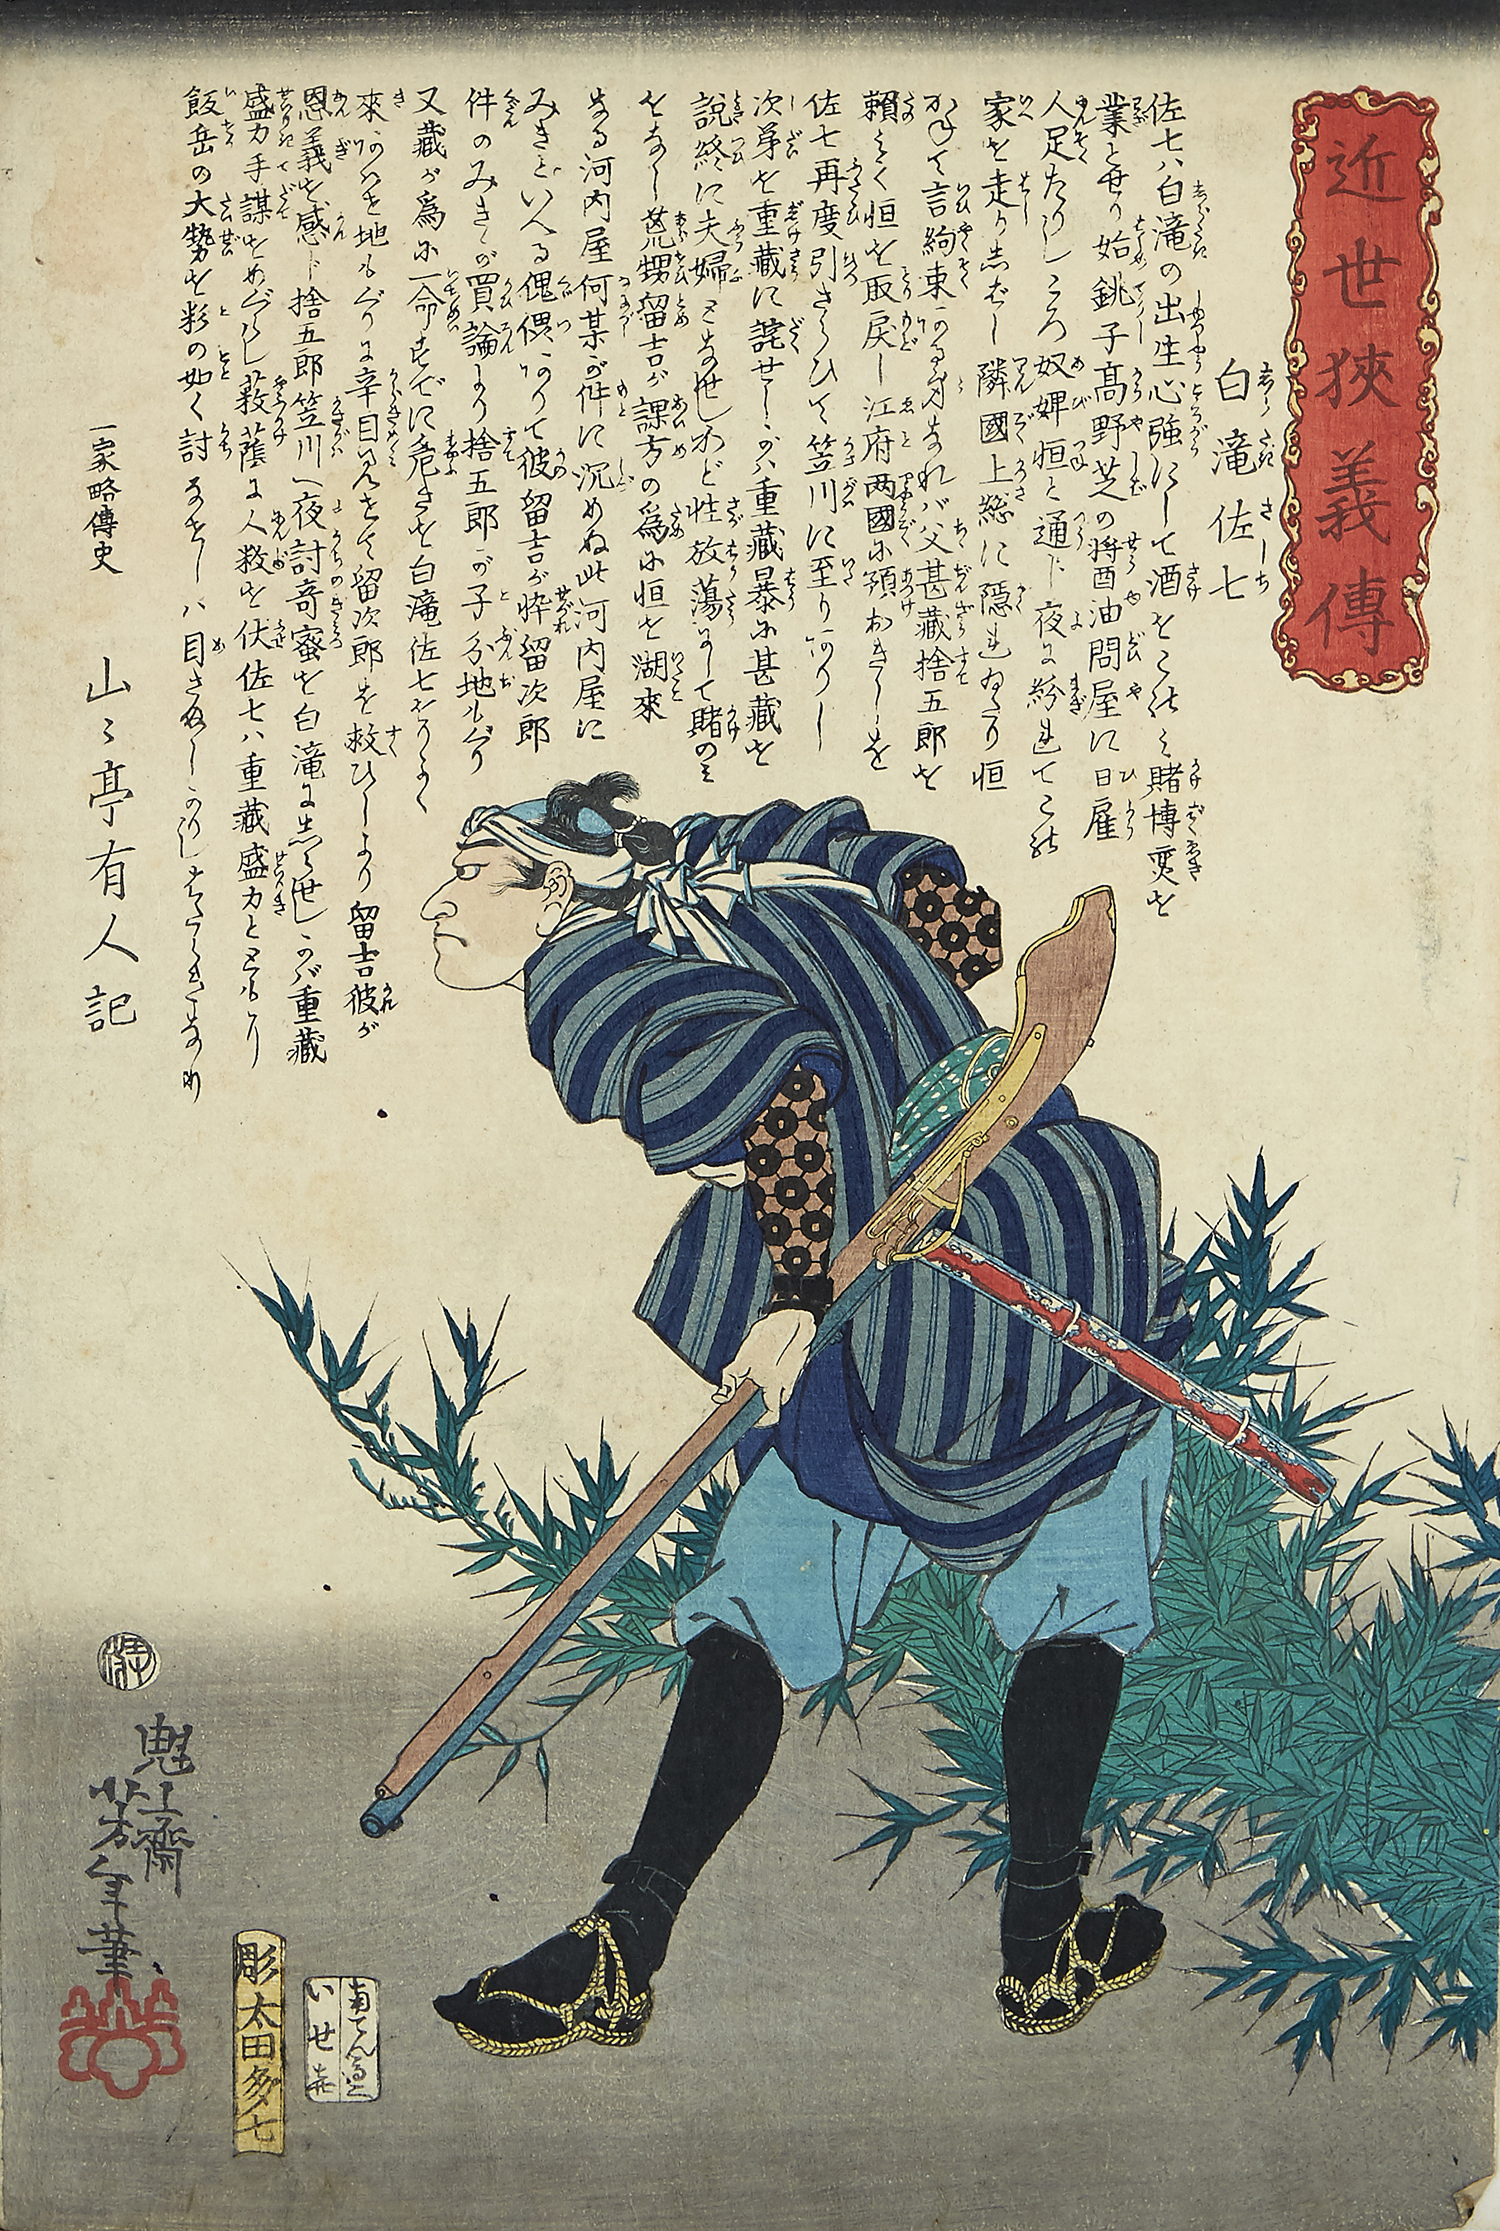 近世侠義傳
白滝佐七
佐七ハ白滝の出生心強にして酒をこのミ賭博変を
業とせり始銚子髙野芝の将酉油問屋に日雇
人足たりしころ奴婢恒と通じ夜に紛れてこの
家を走り去ぞし隣國上総に隠れゐたり恒
かねて言絢束ある身なれバ父甚藏捨五郎を
頼ミて恒を取戻し江府两國に預おきしを
佐七再度引さらひて笠川に至りありし
次第を重藏に詫せしかバ重藏暴に甚藏を
説終に夫婦となせしかど性放蕩にして賭のミ
をなし荒甥留吉が課方の為に恒を潮來
なる河内屋何某が件に沉めぬ此河内屋に
みきといへる傀偎ありて彼留吉が悴留次郎
件のみきが買論より捨五郎が子分地ぐり
又藏が為に一命すでに危きを白滝佐七
來あハせ地ぐりに辛目見せて留次郎を救ひしより留吉彼が
恩義を感じ捨五郎笠川へ夜討竒蜜を白滝に志らせしかバ重藏
盛力手謀をめぐらし薮蔭に人数を伏佐七ハ重藏盛力とともに
飯岳の大勢を彩の如く討なせしハ目さましかりし
一家略傳史
山々亭有人記
魁斎芳年筆
彫太田多七
南てん馬二
いせ喜